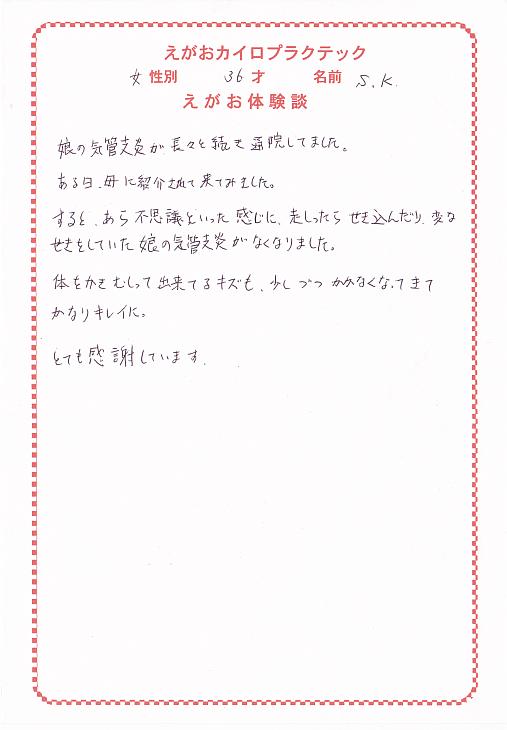 えがおカイロプラクテック
女 性別 36 才 名前 S.K.
えがお体験談
娘の気管支炎が長々と続き通院してました。
ある日、母に紹介されて来てみました。
すると、あら不思議といった感じに、走しったらせき込んだり、変な
せきをしていた娘の気管支炎がなくなりました。
体をかきむしって出来てるキズも、少しづつかかなくなってきて
かなりキレイに。
とても感謝しています。